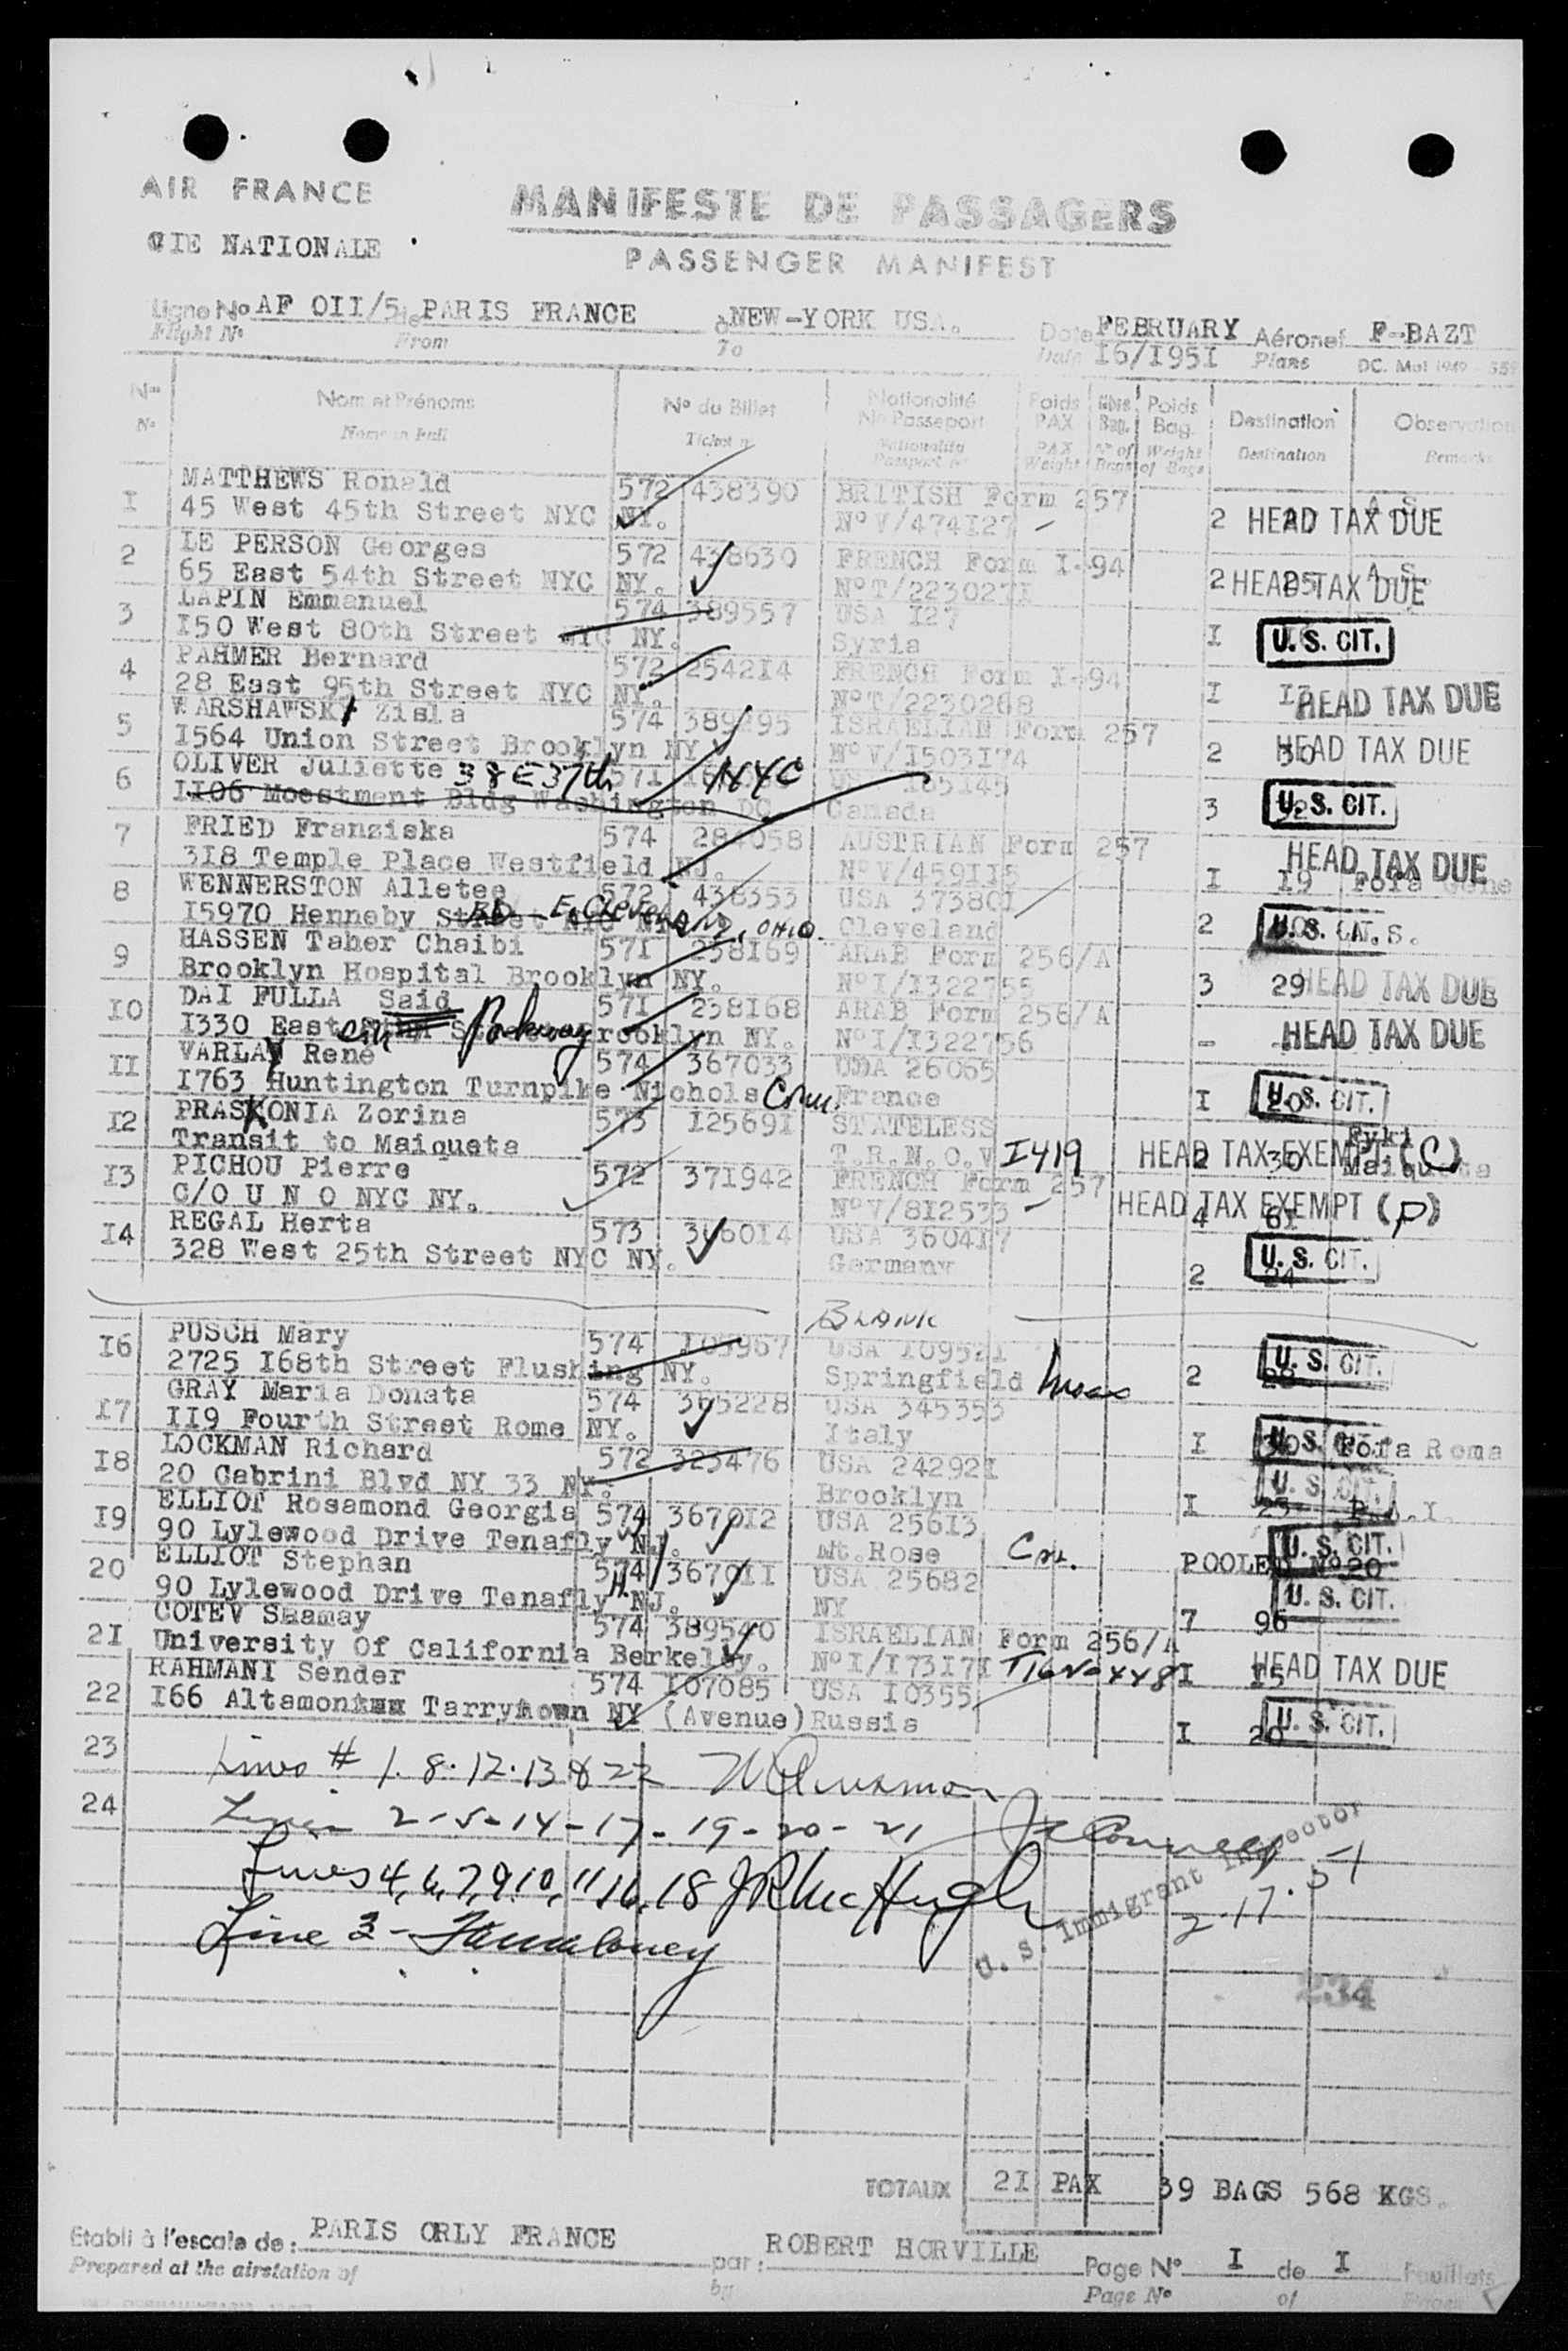 AIR FRANCE
MANIFESTE DE PASSAGERS
CIE NATIONALE
PASSENGER MANIFEST
Ligne No AF OII/5 de PARIS FRANCE à NEW-YORK USA. Date FEBRUARY Aéronef F-BAZT
Flight No From To Date I6/I95I Plane DC. Mol 1949
Nos Nom et Prénoms No du Billet Nationalité No Passeport Poids PAX Nbre Bag. Poids Bag. Destination Observations
No Name in Full Ticket n Nationality Passport n PAX Weight No of Bags Weight of Bags Destination Remarks
I MATTHEWS Ronald 572 438390 BRITISH Form 257 A.S.
45 West 45th Street NYC NY. No V/474I27 - 2 HEAD TAX DUE
2 LE PERSON Georges 572 438630 FRENCH Form I-94 A.S.
65 East 54th Street NYC NY. No T/223027I 2 25 HEAD TAX DUE
3 LAPIN Emmanuel 574 389557 USA I27
I50 West 80th Street NYC NY. Syria I U.S. CIT.
4 PAHMER Bernard 572 2542I4 FRENCH Form I-94
28 East 95th Street NYC NY. No T/2230268 I HEAD TAX DUE
5 WARSHAWSKY Zisla 574 389295 ISRAELIAN Form 257
I564 Union Street Brooklyn NY. No V/I503I74 2 30 HEAD TAX DUE
6 OLIVER Juliette 38 E 37th NYC 57I USA I65I45
II06 Moestment Bldg Washington DC Canada 3 U.S. CIT.
7 FRIED Franziska 574 284058 AUSTRIAN Form 257
3I8 Temple Place Westfield NJ. No V/459II5 I I9 HEAD TAX DUE
8 WENNERSTON Alletee 572 438353 USA 37380I
I5970 Henneby Street NYC NY RD E. Cleveland, OHIO. Cleveland 2 U.S. CIT. A.S.
9 HASSEN Taher Chaibi 57I 238I69 ARAB Form 256/A
Brooklyn Hospital Brooklyn NY. No I/I322755 3 29 HEAD TAX DUE
IO DAI FULLA Said 57I 238I68 ARAB Form 256/A
I330 East Street Parkway Brooklyn NY. No I/I322756 - HEAD TAX DUE
II VARLAY René 574 367033 USA 26065
I763 Huntington Turnpike Nichols Conn. France I 20 U.S. CIT.
I2 PRASKONIA Zorina 573 I2569I STATELESS
Transit to Maiqueta T.R.N.O.V I419 2 30 HEAD TAX EXEMPT (C) Maiqueta
I3 PICHOU Pierre 572 37I942 FRENCH Form 257
C/O U N O NYC NY. No V/8I2533 - 4 6I HEAD TAX EXEMPT (P)
I4 REGAL Herta 573 366OI4 USA 3604I7
328 West 25th Street NYC NY. Germany 2 24 U.S. CIT.
BLANK
I6 PUSCH Mary 574 I03967 USA I0952I
2725 I68th Street Flushing NY. Springfield Mass 2 28 U.S. CIT.
I7 GRAY Maria Donata 574 365228 USA 345353
II9 Fourth Street Rome NY. Italy I 30 U.S. CIT. Fofa Roma
I8 LOCKMAN Richard 572 323476 USA 24292I
20 Cabrini Blvd NY 33 NY. Brooklyn I 23 U.S. CIT.
I9 ELLIOT Rosamond Georgia 574 3670I2 USA 256I3
90 Lylewood Drive Tenafly NJ. Mt.Rose POOLED No 20 U.S. CIT.
20 ELLIOT Stephan 574 3670II USA 25682
90 Lylewood Drive Tenafly NJ. NY 7 96 U.S. CIT.
2I COTEV Shamay 574 389540 ISRAELIAN Form 256/A
University Of California Berkeley. No I/I73I7I I I5 HEAD TAX DUE
22 RAHMANI Sender 574 I07085 USA I0355
I66 Altamont Tarrytown NY (Avenue) Russia I 20 U.S. CIT.
23 Lines # 1. 8. 12. 13 & 22
24 Lines 2-5-14-17-19-20-21
Lines 4, 6, 7, 9, 10, 11, 16, 18 J R McHugh
Line 3 -
U. S. Immigrant Inspector
2.17.51
234
TOTAUX 2I PAX 39 BAGS 568 KGS.
Etabli à l'escale de: PARIS ORLY FRANCE par: ROBERT HORVILLE Page No I de I Feuillets
Prepared at the airstation of by Page No of Pages